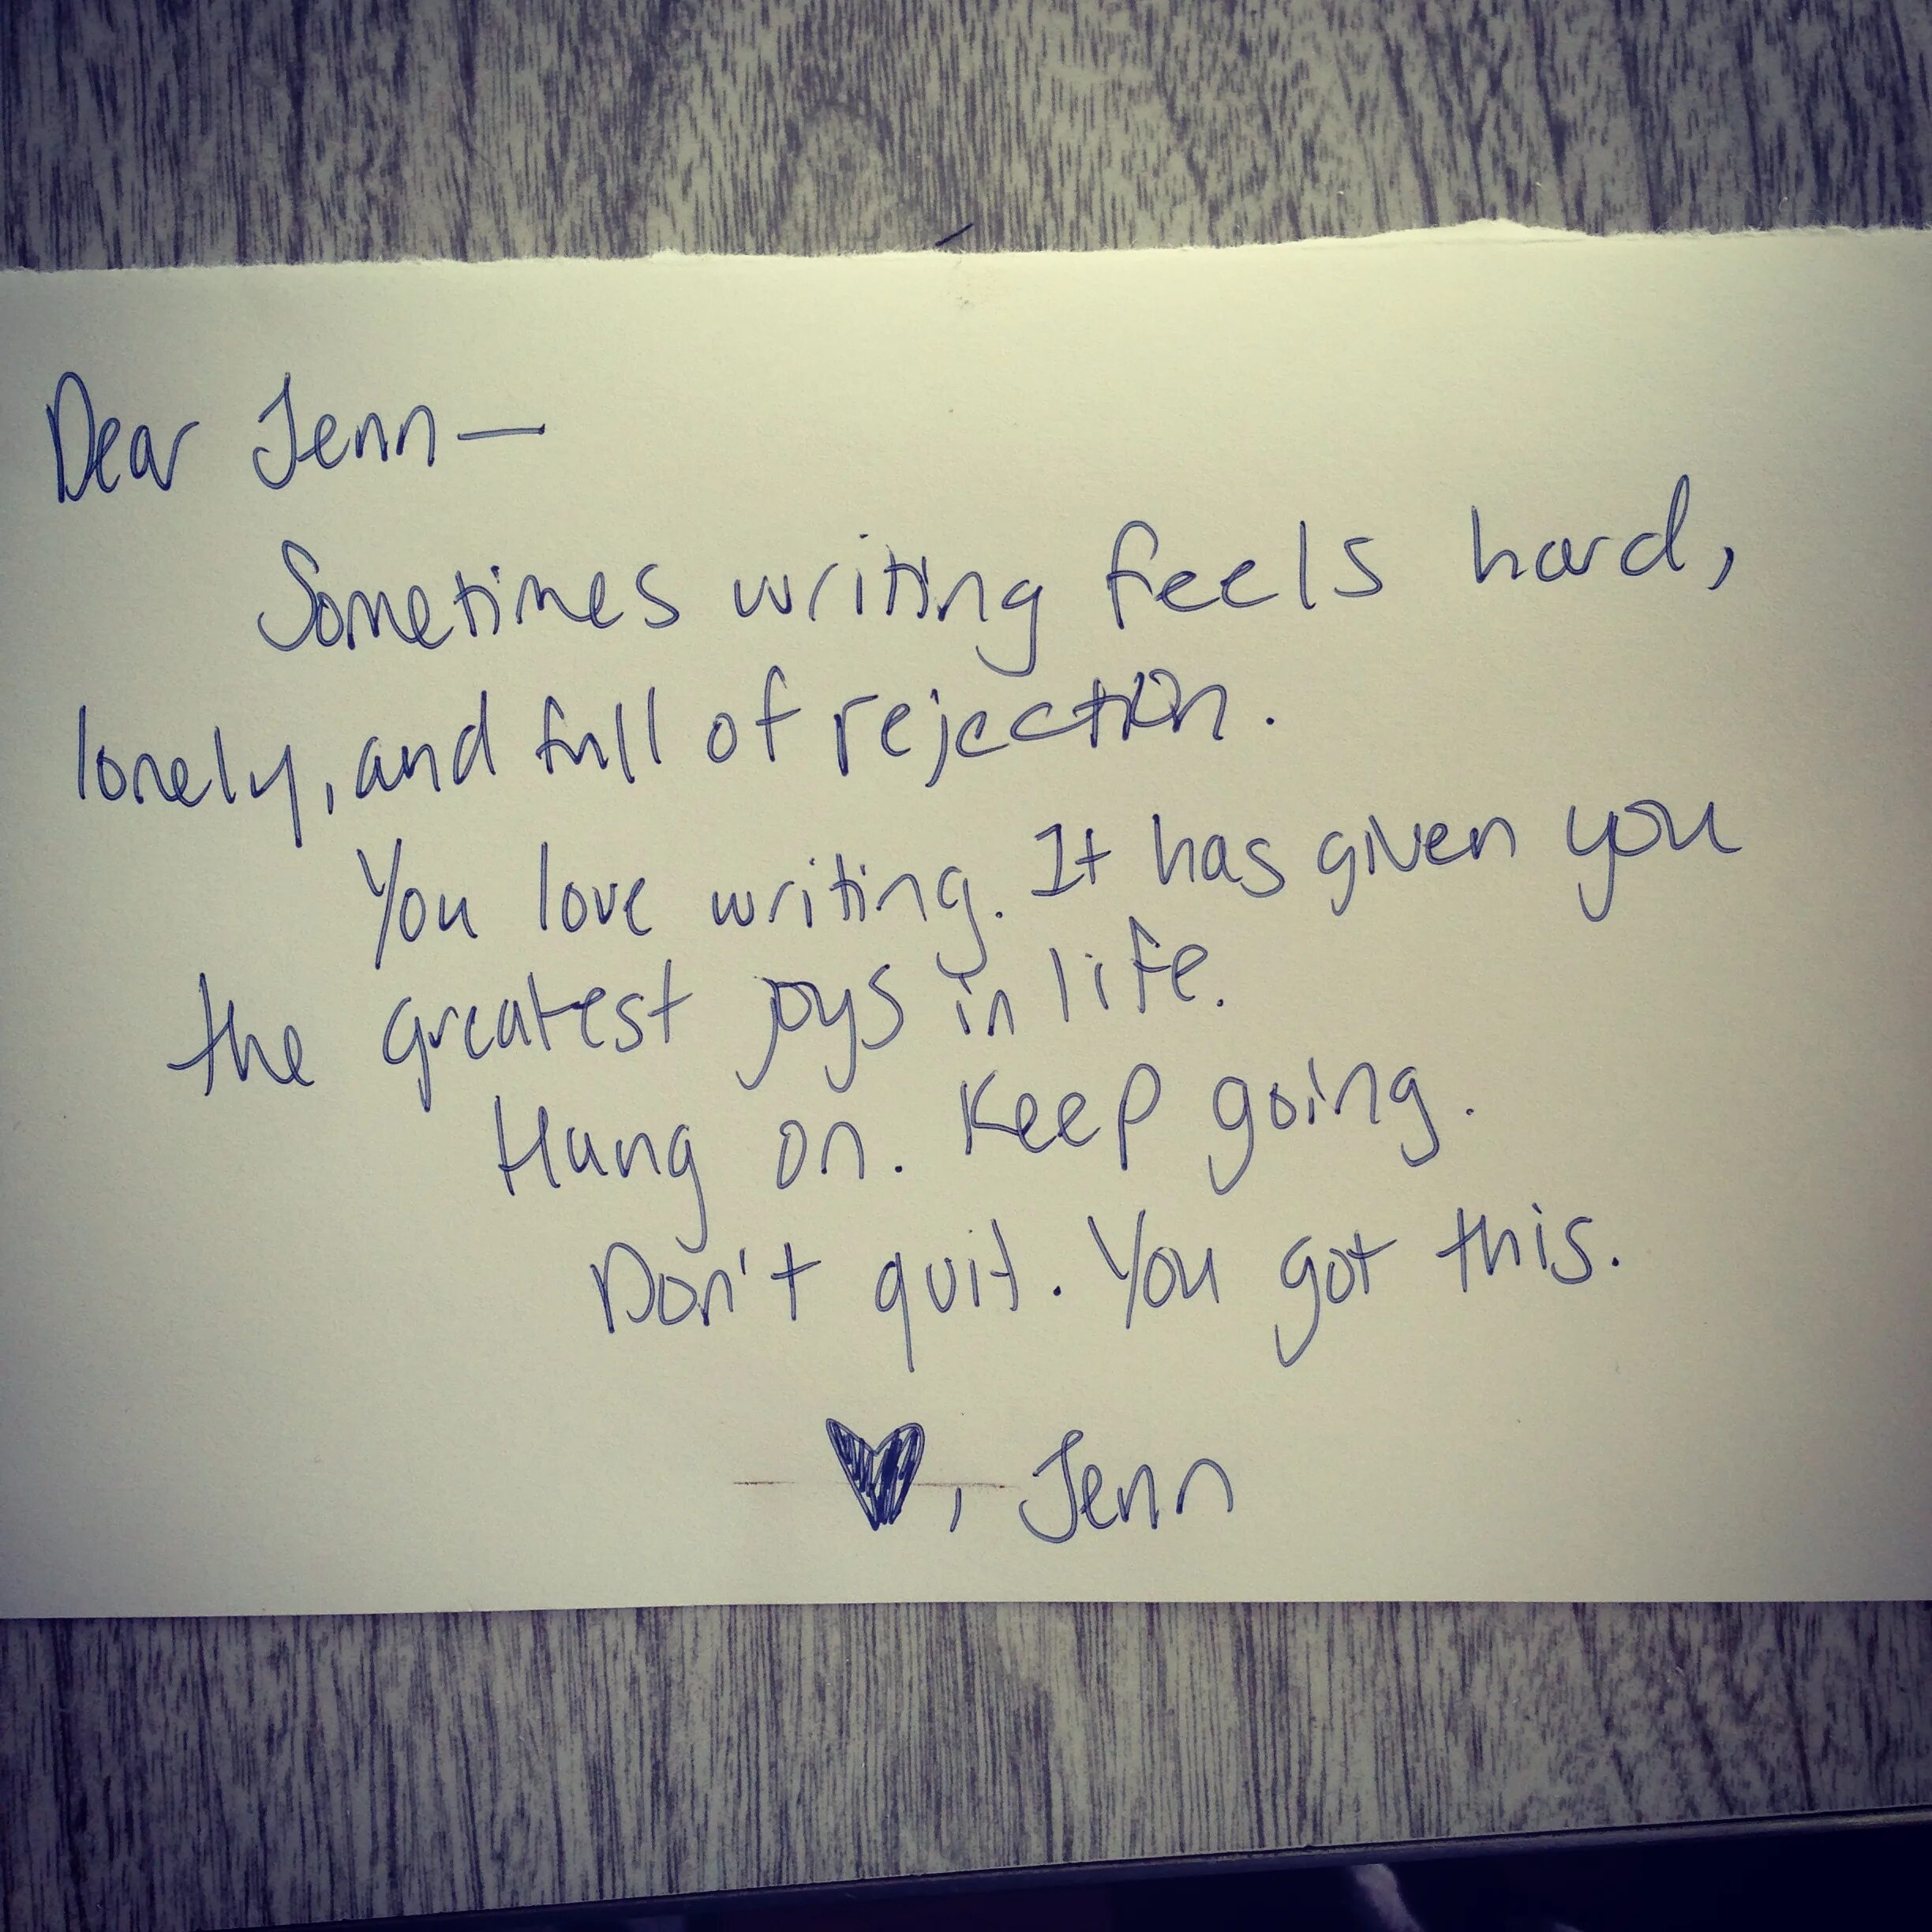 Dear Jenn—
Sometimes writing feels hard,
lonely, and full of rejection.
You love writing. It has given you
the greatest joys in life.
Hang on. Keep going.
Don't quit. You got this.
♥, Jenn